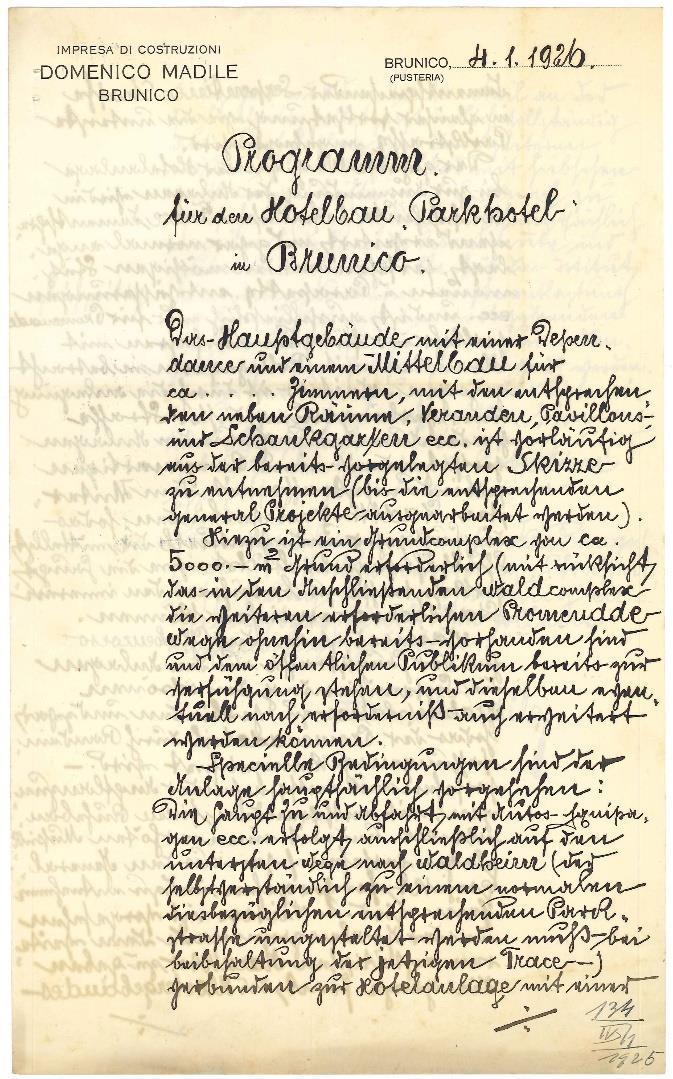 IMPRESA DI COSTRUZIONI
DOMENICO MADILE
BRUNICO
BRUNICO, 4.1.1926.
(PUSTERIA)
Programm.
für den Hotelbau "Parkhotel"
in Brunico.
Das Hauptgebäude mit einer Depen-
dance und einem Mittelbau für
ca . . . . Zimmern, mit den entsprechen
den neben Räume, Veranden, Pavillons
und Schankgarten ecc. ist vorläufig
aus der bereits vorgelegten Skizze
zu entnehmen (bis die entsprechenden
general Projekte ausgearbeitet werden).
Hiezu ist ein Grundcomplex von ca.
5000.- m² Grund erforderlich (mit rücksicht,
das in den Anschließenden Waldcomplex
die weiteren erforderlichen Promenadde
wege ohnehin bereits vorhanden sind
und dem öffentlichen Publikum bereits zur
verfühgung stehen, und dieselben even-
tuell nach erforderniß auch erweitert
werden können.
Specielle Bedingungen sind der
Anlage hauptsächlich vorgesehen:
Die Haupt zu und abfahrt mit Autos Equipa-
gen ecc. erfolgt ausschließlich auf den
untersten Wege nach Waldheim (der
selbstverständlich zu einem normalen
diesbezüglichen entsprechenden Park-
strasse umgestaltet werden muß bei
beibehaltung der jetzigen Trace)
verbunden zur Hotelanlage mit einer
134
IV5/1
1925